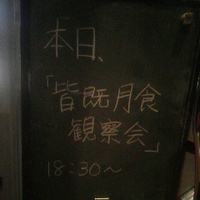 本日、
「皆既月食
観察会」
18:30〜